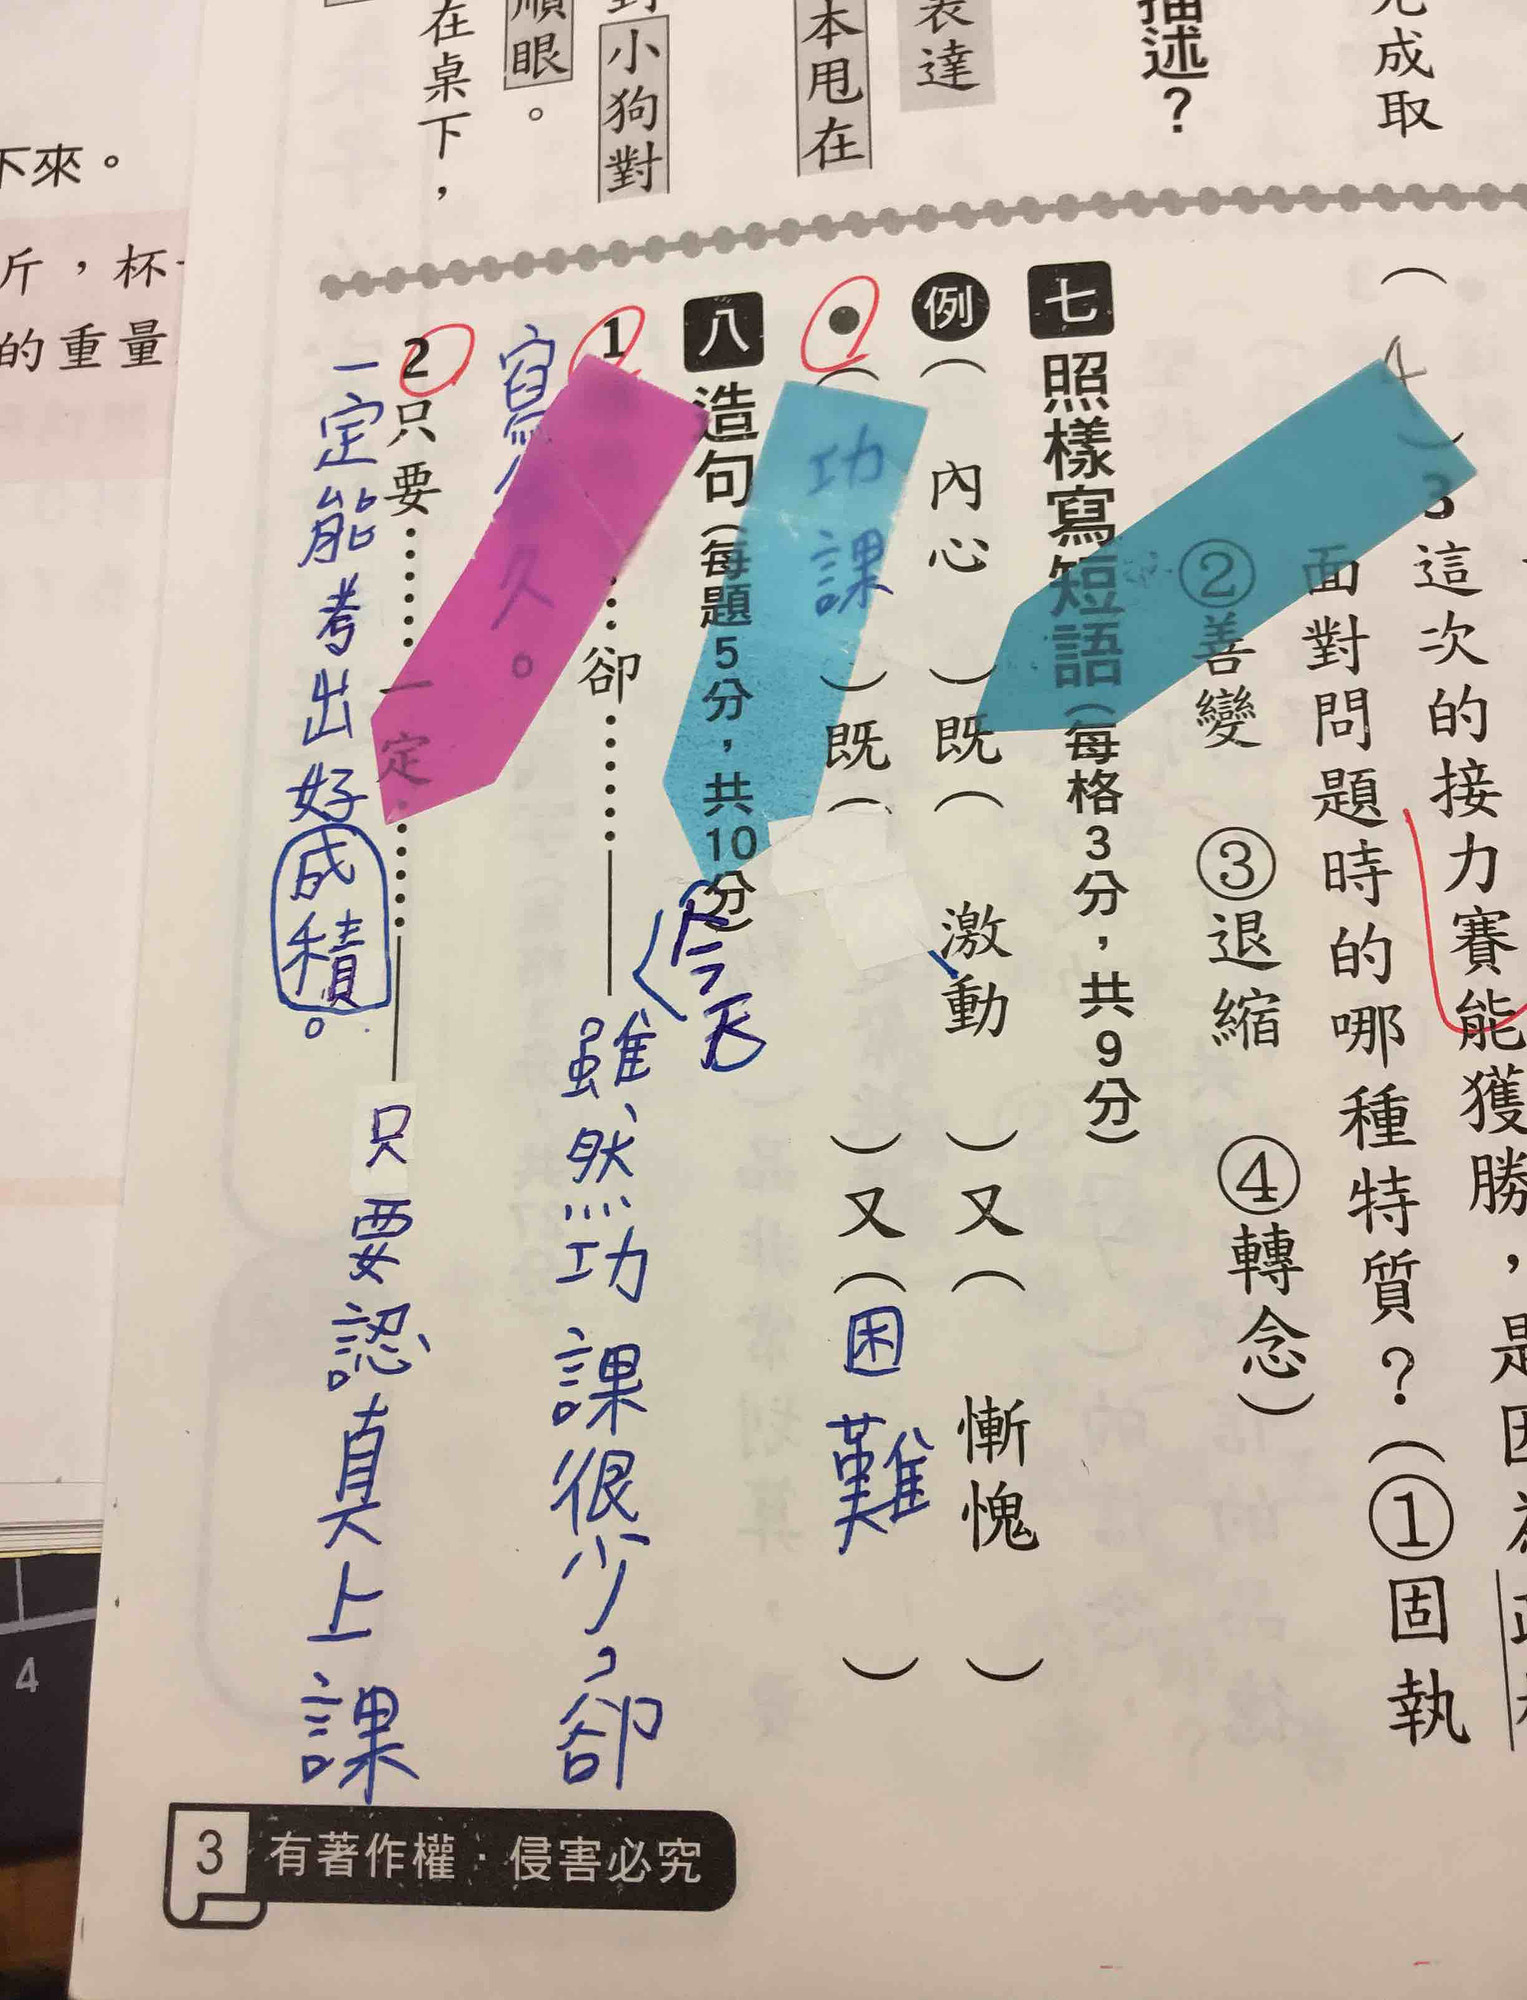 完成取
描述？
表達
本甩在
對小狗對
順眼。
在桌下，
（4）3這次的接力賽能獲勝，是因為
面對問題時的哪種特質？（①固執
②善變 ③退縮 ④轉念）
七 照樣寫短語（每格3分，共9分）
例（內心）既（激動）又（慚愧）
●（功課）既（ ）又（困難）
八 造句（每題5分，共10分）
今天
1 ……卻……——雖然功課很少，卻
寫 久。
2 只要……一定……——只要認真上課
一定能考出好成積。
下來。
斤，杯
的重量
3 有著作權．侵害必究
4